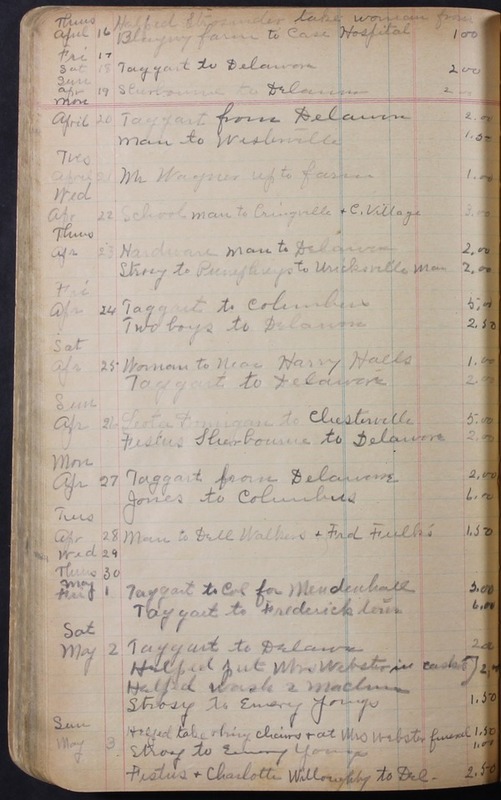 Thurs Helped take woman from
April 16 farm to Case Hospital 1 00
Fri 17
Sat 18 Taggart to Delaware 2 00
Sun
Apr 19 Sherbourne to Delaware 2
Mon
April 20 Taggart from Delaware 2.00
Man to 1.50
Tues
April 21 Mr Wagner up to farm 1.00
Wed
Apr 22 School man to & C. Village 3.00
Thurs
Apr 23 Hardware man to Delaware 2.00
to to man 2.00
Fri
Apr 24 Taggart to Columbus 5.00
Two boys to Delaware 2.50
Sat
Apr 25 Woman to near Harry Halls 1.00
Taggart to Delaware 2.00
Sun
Apr 26 to Chesterville 5.00
Festus Sherbourne to Delaware 2.00
Mon
Apr 27 Taggart from Delaware 2.00
Jones to Columbus 6.00
Tues
Apr 28 Man to Dell Walkers & Fred Fulks 1.50
Wed 29
Thurs 30
May
Fri 1 Taggart to Col for Mendenhall 5.00
Taggart to Fredericktown 6.00
Sat
May 2 Taggart to Delaware 2.00
Helped put Mrs Webster in casket
Helped wash 2
to Emery Youngs 1.50
Sun
May 3 Helped take & bring chairs & at Mrs Webster funeral 1.50
to Emery Youngs 1.00
Festus & Charlotte Willoughby to Del- 2.50